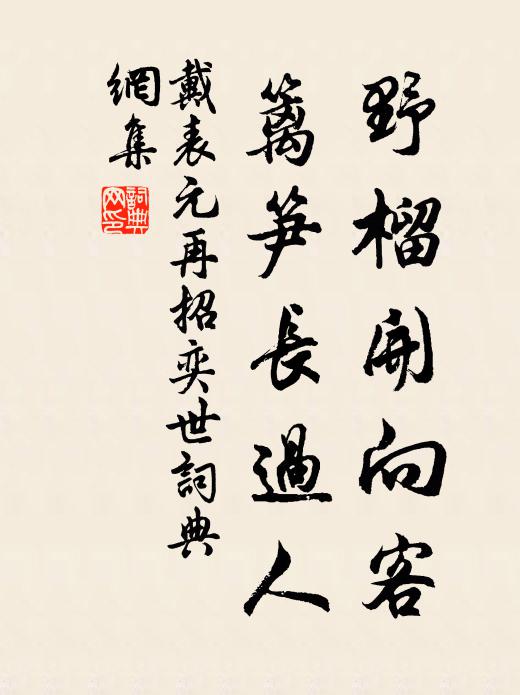 野榴開向客
籬笋長過人
戴表元再招奕世詞典
網集
詞典網印